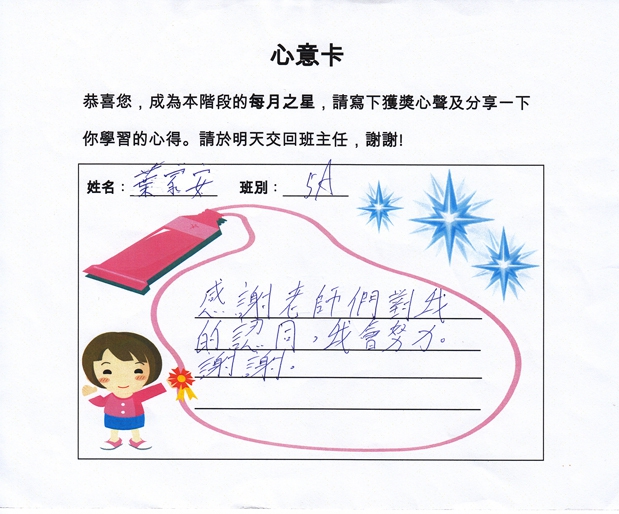 心意卡
恭喜您，成為本階段的每月之星，請寫下獲獎心聲及分享一下
你學習的心得。請於明天交回班主任，謝謝!
姓名：葉家安 班別：5A
感謝老師們對我
的認同，我會努力。
謝謝。